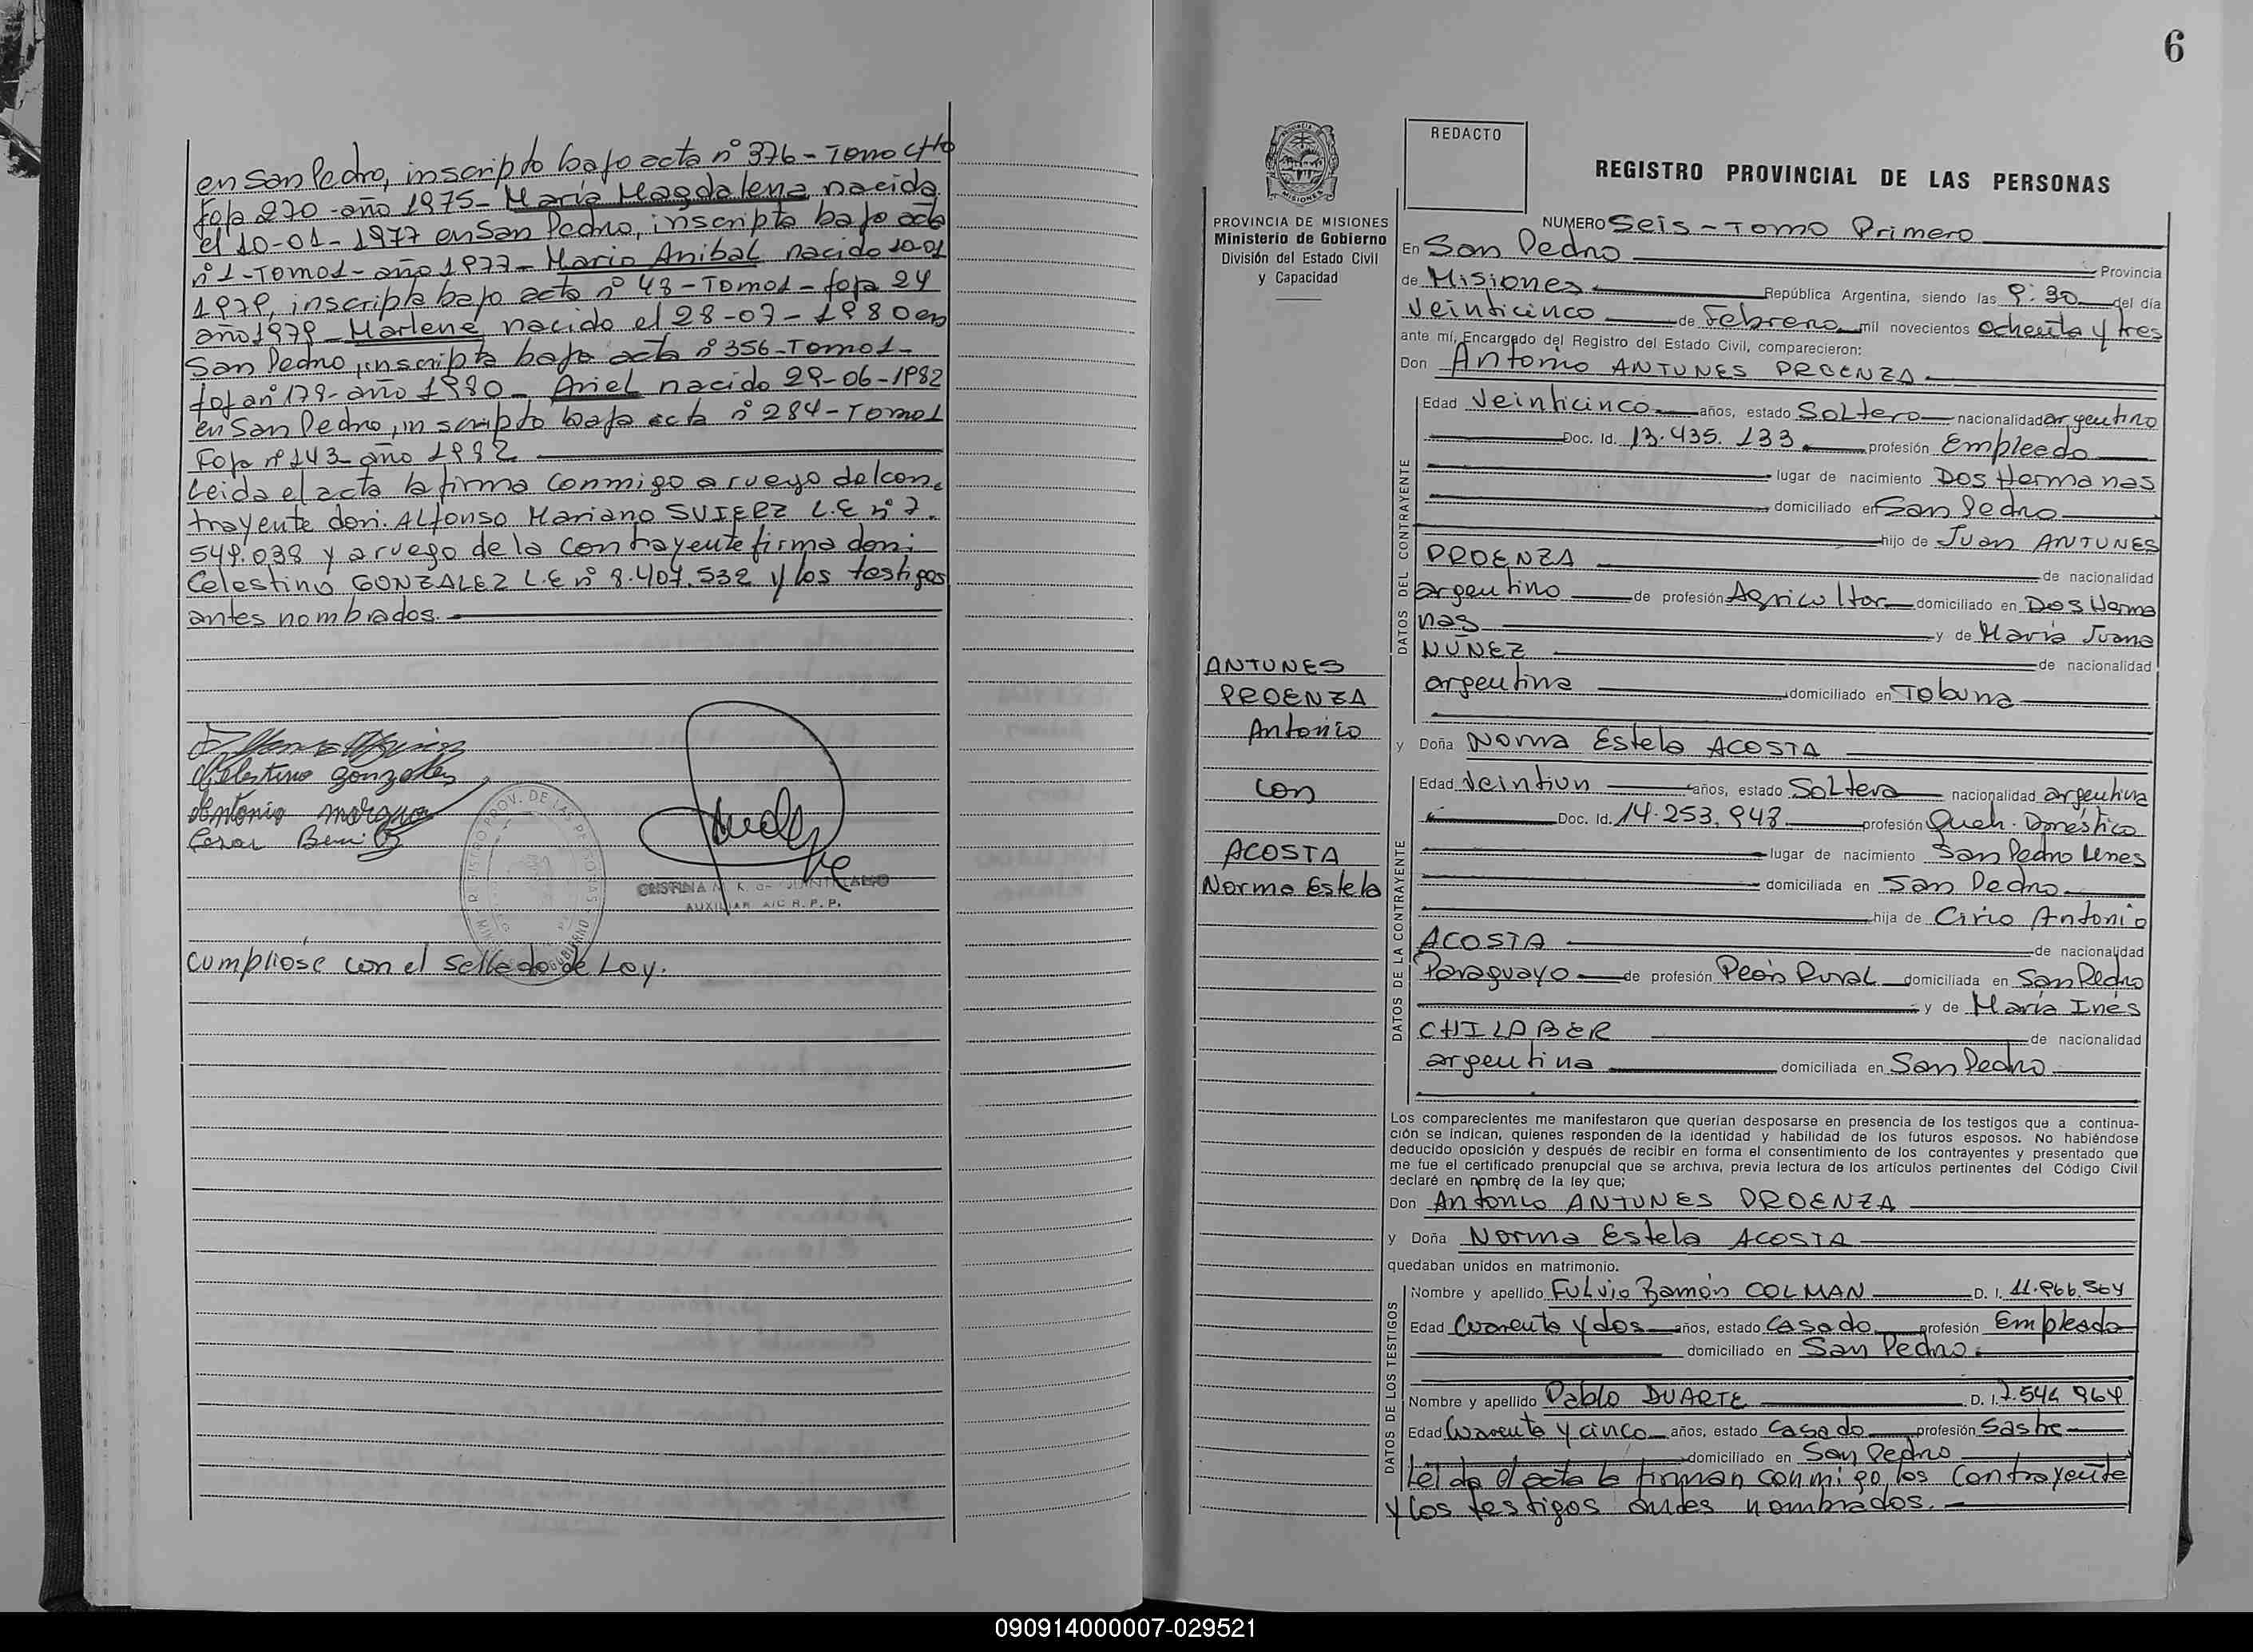 en San Pedro, inscripto bajo acta nº 376 - Tomo
foja 270 - año 1975 - María Magdalena nacida
el 10-01-1977 en San Pedro, inscripta bajo acta
nº 1 - Tomo 1 - año 1977 - Mario Anibal nacido 10-01
1979, inscripto bajo acta nº 48 - Tomo 1 - foja 24
año 1979 - Marlene nacido el 28-07-1980 en
San Pedro, inscripta bajo acta nº 356 - Tomo 1 -
foja nº 178 - año 1980 - Ariel nacido 29-06-1982
en San Pedro, inscripto bajo acta nº 284 - Tomo 1
Foja nº 143 año 1982
Leida el acta la firma conmigo a ruego del con-
trayente don: Alfonso Mariano L.E nº 7.
549.038 y a ruego de la contrayente firma don:
Celestino GONZALEZ L.E nº 8.407.532 y los testigos
antes nombrados.
Celestino Gonzalez
Antonio
Cesar
CRISTINA M. K. de QUINTILIANO
AUXILIAR A/C R. P. P.
cumpliose con el Sellado de Ley.
6
REDACTO
REGISTRO PROVINCIAL DE LAS PERSONAS
PROVINCIA DE MISIONES
Ministerio de Gobierno
División del Estado Civil
y Capacidad
NUMERO Seis - Tomo Primero
En San Pedro Provincia
de Misiones República Argentina, siendo las 9:30 del día
Veinticinco de Febrero mil novecientos ochenta y tres
ante mí, Encargado del Registro del Estado Civil, comparecieron:
Don Antonio ANTUNES PROENZA
DATOS DEL CONTRAYENTE
Edad Veinticinco años, estado Soltero nacionalidad argentino
Doc. Id. 13.435.133 profesión Empleado
lugar de nacimiento Dos Hermanas
domiciliado en San Pedro
hijo de Juan ANTUNES
PROENZA de nacionalidad
argentino de profesión Agricultor domiciliado en Dos Herma
nas y de María Juana
NÚÑEZ de nacionalidad
argentina domiciliado en Tobuna
ANTUNES
PROENZA
Antonio
con
ACOSTA
Norma Estela
y Doña Norma Estela ACOSTA
DATOS DE LA CONTRAYENTE
Edad Veintiun años, estado Soltera nacionalidad argentina
Doc. Id. 14.253.943 profesión Queh. Doméstico
lugar de nacimiento San Pedro Mnes
domiciliada en San Pedro
hija de Cirio Antonio
ACOSTA de nacionalidad
Paraguayo de profesión Peón Rural domiciliada en San Pedro
y de María Inés
CHILABER de nacionalidad
argentina domiciliada en San Pedro
Los comparecientes me manifestaron que querían desposarse en presencia de los testigos que a continua-
ción se indican, quienes responden de la identidad y habilidad de los futuros esposos. No habiéndose
deducido oposición y después de recibir en forma el consentimiento de los contrayentes y presentado que
me fue el certificado prenupcial que se archiva, previa lectura de los artículos pertinentes del Código Civil
declaré en nombre de la ley que;
Don Antonio ANTUNES PROENZA
y Doña Norma Estela ACOSTA
quedaban unidos en matrimonio.
DATOS DE LOS TESTIGOS
Nombre y apellido Fulvio Ramón COLMAN D. I. 11.966.564
Edad Cuarenta y dos años, estado Casado profesión Empleado
domiciliado en San Pedro
Nombre y apellido Pablo DUARTE D. I. 7.546 964
Edad Cuarenta y cinco años, estado Casado profesión Sastre
domiciliado en San Pedro
Leida el acta la firman conmigo los Contrayente
y los testigos antes nombrados.
090914000007-029521